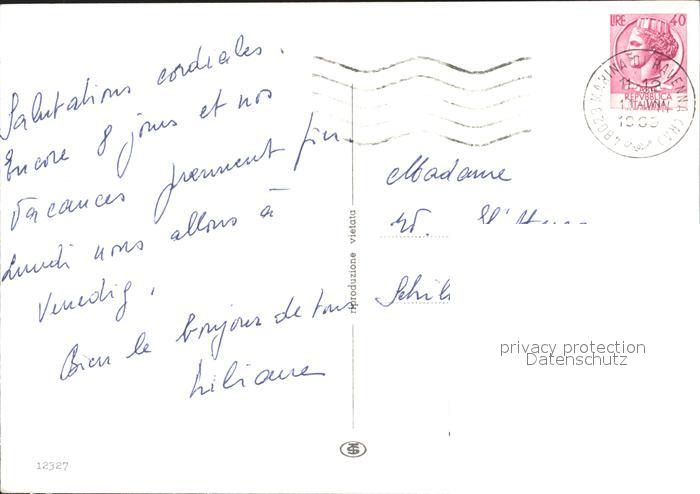 Salutations cordiales.
Encore 8 jours et nos
vacances prennent fin.
Lundi nous allons à
Venedig.
Bien le bonjour de tous
Liliane
Madame
riproduzione vietata
12327
LIRE 40
REPVBBLICA
ITALIANA
48023 MARINA DI RAVENNA (RA)
privacy protection
Datenschutz